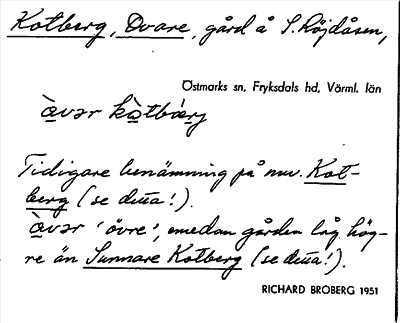 Kotberg, Ovare, gård å S. Röjdåsen,
Östmarks sn, Fryksdals hd, Värml. län
àvər kòtbǽrj
Tidigare benämning på nuv. Kot-
berg (se detta!).
àvər 'övre', emedan gården låg hög-
re än Sunnare Kotberg (se detta!).
RICHARD BROBERG 1951